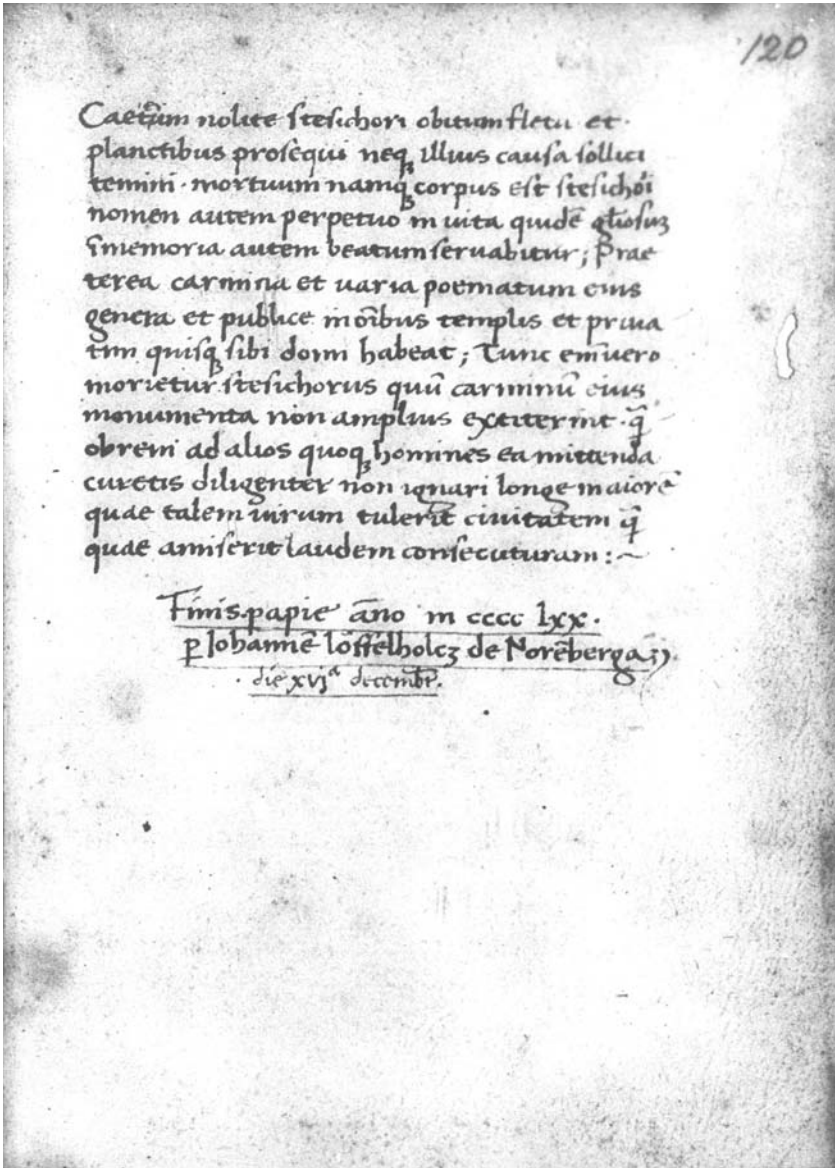 120
Caetr̃um nolite stesichori obitum fletu et
planctibus prosequi neqꝫ illius causa sollici
temini · mortuum namqꝫ corpus est stesichori
nomen autem perpetuo in uita quidẽ gl̃iosuꝫ
ĩ memoria autem beatum seruabitur ; Prae
terea carmina et uaria poematum eius
genera et publice in oĩbus templis et priua
tim quisqꝫ sibi domi habeat ; Tunc enĩ uero
morietur stesichorus quũ carminũ eius
monumenta non amplius extiterint · q̃
obrem ad alios quoqꝫ homines ea mittenda
curetis diligenter nõn ignari longe maiorẽ
quae talem uirum tulerit ciuitatem q̃
quae amiserit laudem consecuturam :~
Finis papie ãno m cccc lxx ·
ꝑ Johannẽ löffelholcꝫ de Norẽberga
· die xvjᵃ decembr̃ .